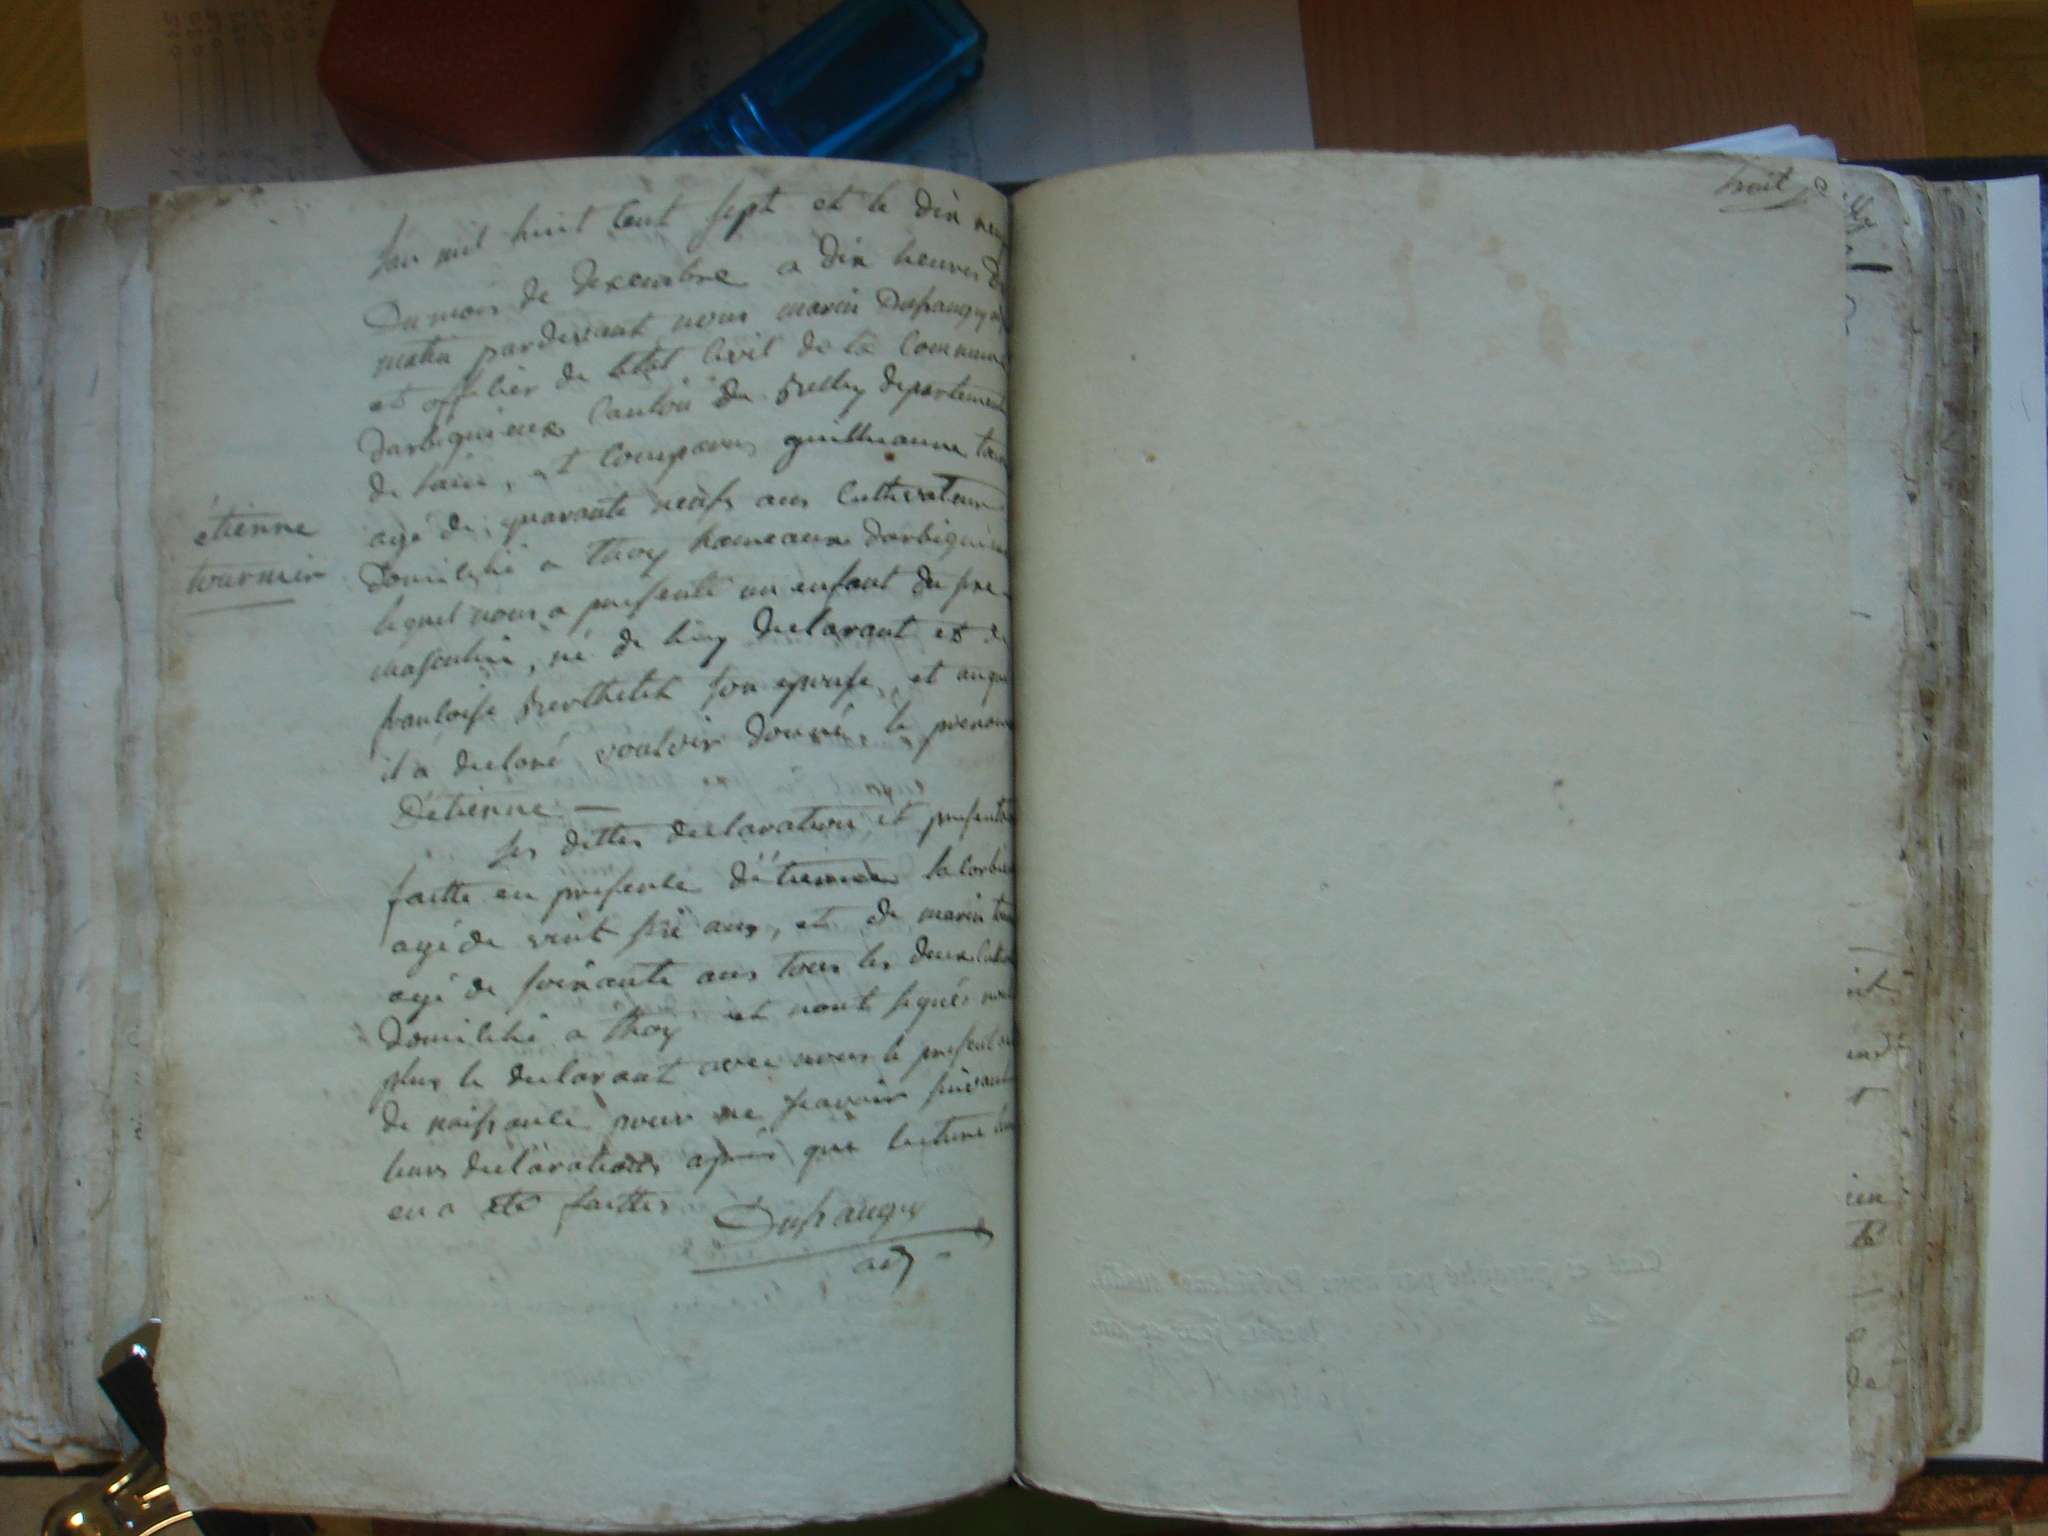 huit
lan mil huit cent sept et le dix neuf
Du mois de dexembre a dix heures du
matin pardevant nous marin Dufraugy
et officier de létat civil de la Commune
darbiguieux canton de Belley departement
de lain, est comparus guilleaume tour
agé de quarante neufs ans cultivateur
Domicilié a thoy hameaux darbiguieu
lequel nous a présenté un enfant du sexe
masculin, né de luy déclarant et de
francoise Berthelet son epouse, et auquel
il a declaré vouloir donné, le prenom
D'étienne —
les dittes declaration et presentat
faitte en presence d'étienne lacorbie
agé de vint six ans, et de marin tour
agé de soixante ans tous les deux cultiva
domicilié a thoy et nont signés non
plus le declarant avec nous le present acte
de naissance pour ne scavoir suivant
leurs déclarations après que lecture leur
en a été faittes
Dufraugy
adj
étienne
tournier